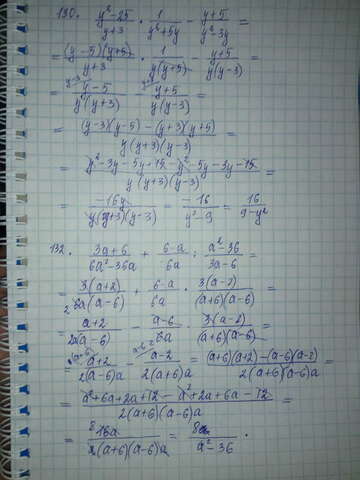 130. (y²-25)/(y+3) · 1/(y²+5y) - (y+5)/(y²-3y) =
= (y-5)(y+5)/(y+3) · 1/(y(y+5)) - (y+5)/(y(y-3)) =
= (y-5)/(y(y+3)) - (y+5)/(y(y-3)) =
= ((y-3)(y-5) - (y+3)(y+5))/(y(y+3)(y-3)) =
= (y²-3y-5y+15-y²-5y-3y-15)/(y(y+3)(y-3)) =
= -16y/(y(y+3)(y-3)) = -16/(y²-9) = 16/(9-y²)
132. (3a+6)/(6a²-36a) + (6-a)/6a : (a²-36)/(3a-6) =
= 3(a+2)/(6a(a-6)) + (6-a)/6a · 3(a-2)/((a+6)(a-6)) =
= (a+2)/(2a(a-6)) - (a-6)/6a · 3(a-2)/((a+6)(a-6)) =
= (a+2)/(2(a-6)a) - (a-2)/(2(a+6)a) = ((a+6)(a+2)-(a-6)(a-2))/(2(a+6)(a-6)a) =
= (a²+6a+2a+12-a²+2a+6a-12)/(2(a+6)(a-6)a) =
= 16a/(2(a+6)(a-6)a) = 8/(a²-36) .